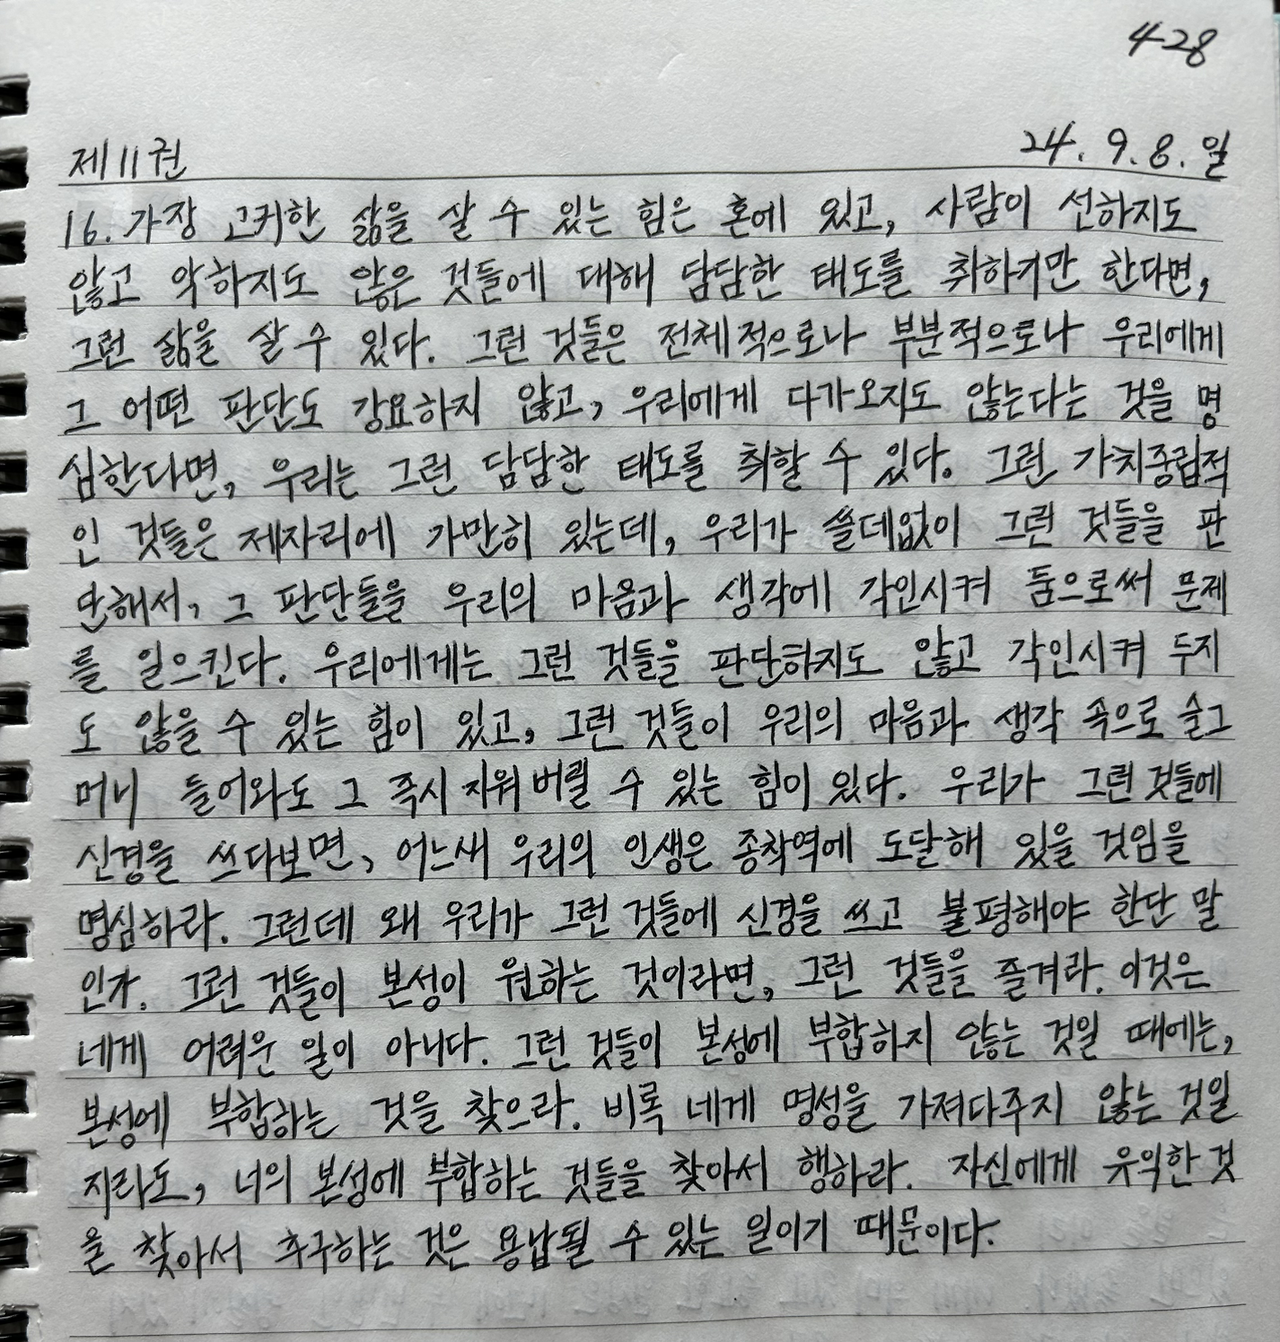 428
제11권 24. 9. 8. 일
16. 가장 고귀한 삶을 살 수 있는 힘은 혼에 있고, 사람이 선하지도
않고 악하지도 않은 것들에 대해 담담한 태도를 취하기만 한다면,
그런 삶을 살 수 있다. 그런 것들은 전체적으로나 부분적으로나 우리에게
그 어떤 판단도 강요하지 않고, 우리에게 다가오지도 않는다는 것을 명
심한다면, 우리는 그런 담담한 태도를 취할 수 있다. 그런 가치중립적
인 것들은 제자리에 가만히 있는데, 우리가 쓸데없이 그런 것들을 판
단해서, 그 판단들을 우리의 마음과 생각에 각인시켜 둠으로써 문제
를 일으킨다. 우리에게는 그런 것들을 판단하지도 않고 각인시켜 두지
도 않을 수 있는 힘이 있고, 그런 것들이 우리의 마음과 생각 속으로 슬그
머니 들어와도 그 즉시 지워 버릴 수 있는 힘이 있다. 우리가 그런 것들에
신경을 쓰다보면, 어느새 우리의 인생은 종착역에 도달해 있을 것임을
명심하라. 그런데 왜 우리가 그런 것들에 신경을 쓰고 불평해야 한단 말
인가. 그런 것들이 본성이 원하는 것이라면, 그런 것들을 즐겨라. 이것은
네게 어려운 일이 아니다. 그런 것들이 본성에 부합하지 않는 것일 때에는,
본성에 부합하는 것을 찾으라. 비록 네게 명성을 가져다주지 않는 것일
지라도, 너의 본성에 부합하는 것들을 찾아서 행하라. 자신에게 유익한 것
을 찾아서 추구하는 것은 용납될 수 있는 일이기 때문이다.